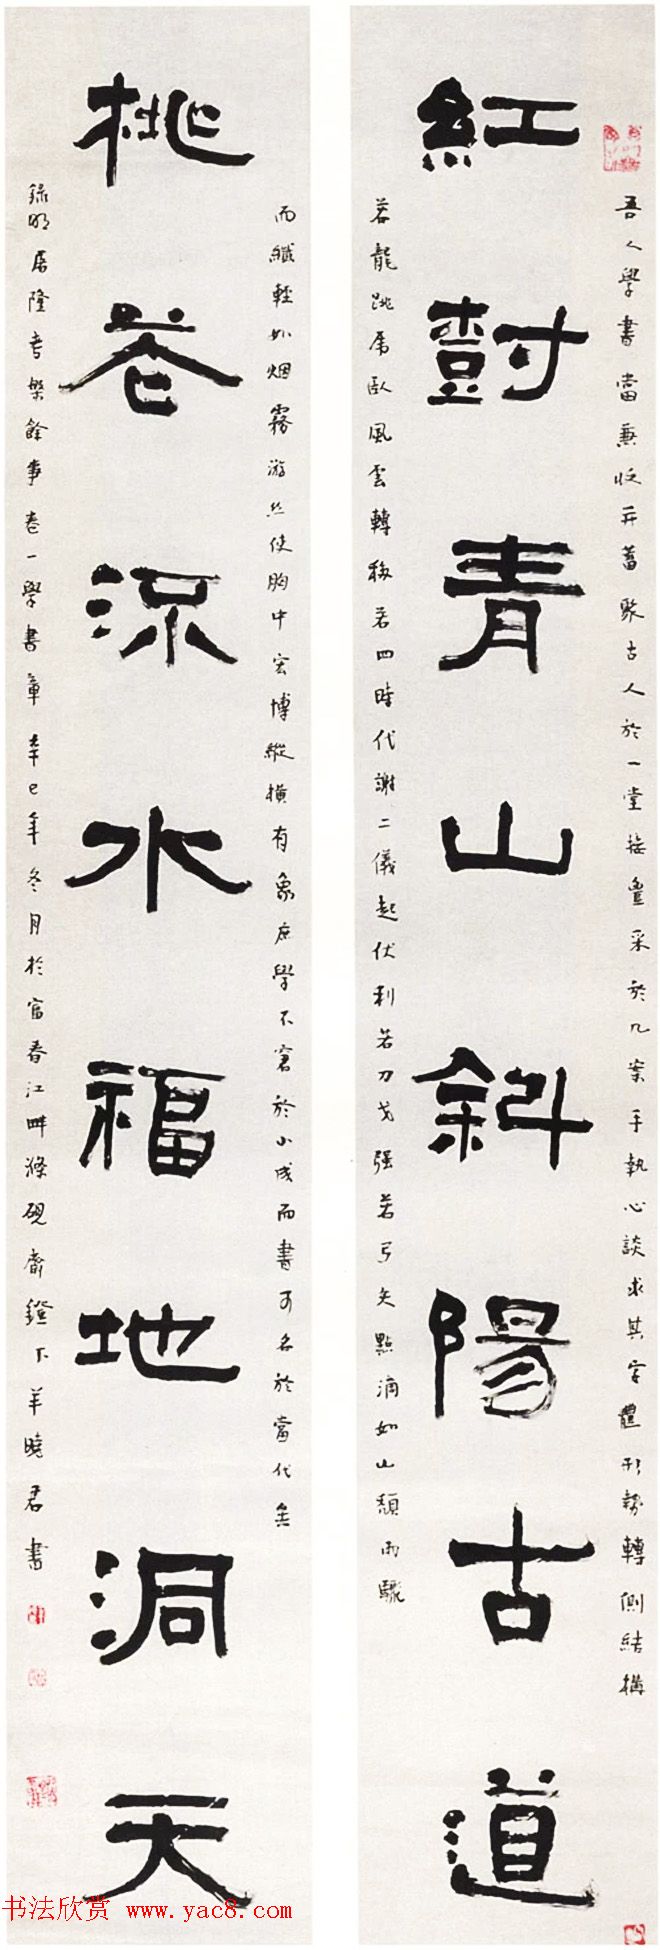 紅樹青山斜陽古道
桃花流水福地洞天
吾人學書當兼收并蓄聚古人於一堂接豐采於几案手執心談求其字體形勢轉側結構
若龍跳虎臥風雲轉移若四時代謝二儀起伏利若刀戈强若弓矢點滴如山頹雨驟
而纖輕如烟霧游丝使胸中宏博縱橫有象庶學不窘於小成而書可名於當代矣
錄明屠隆考槃餘事卷一學書章 辛巳年冬月於富春江畔滌硯齋鐙下羊曉君書
书法欣赏 www.yac8.com